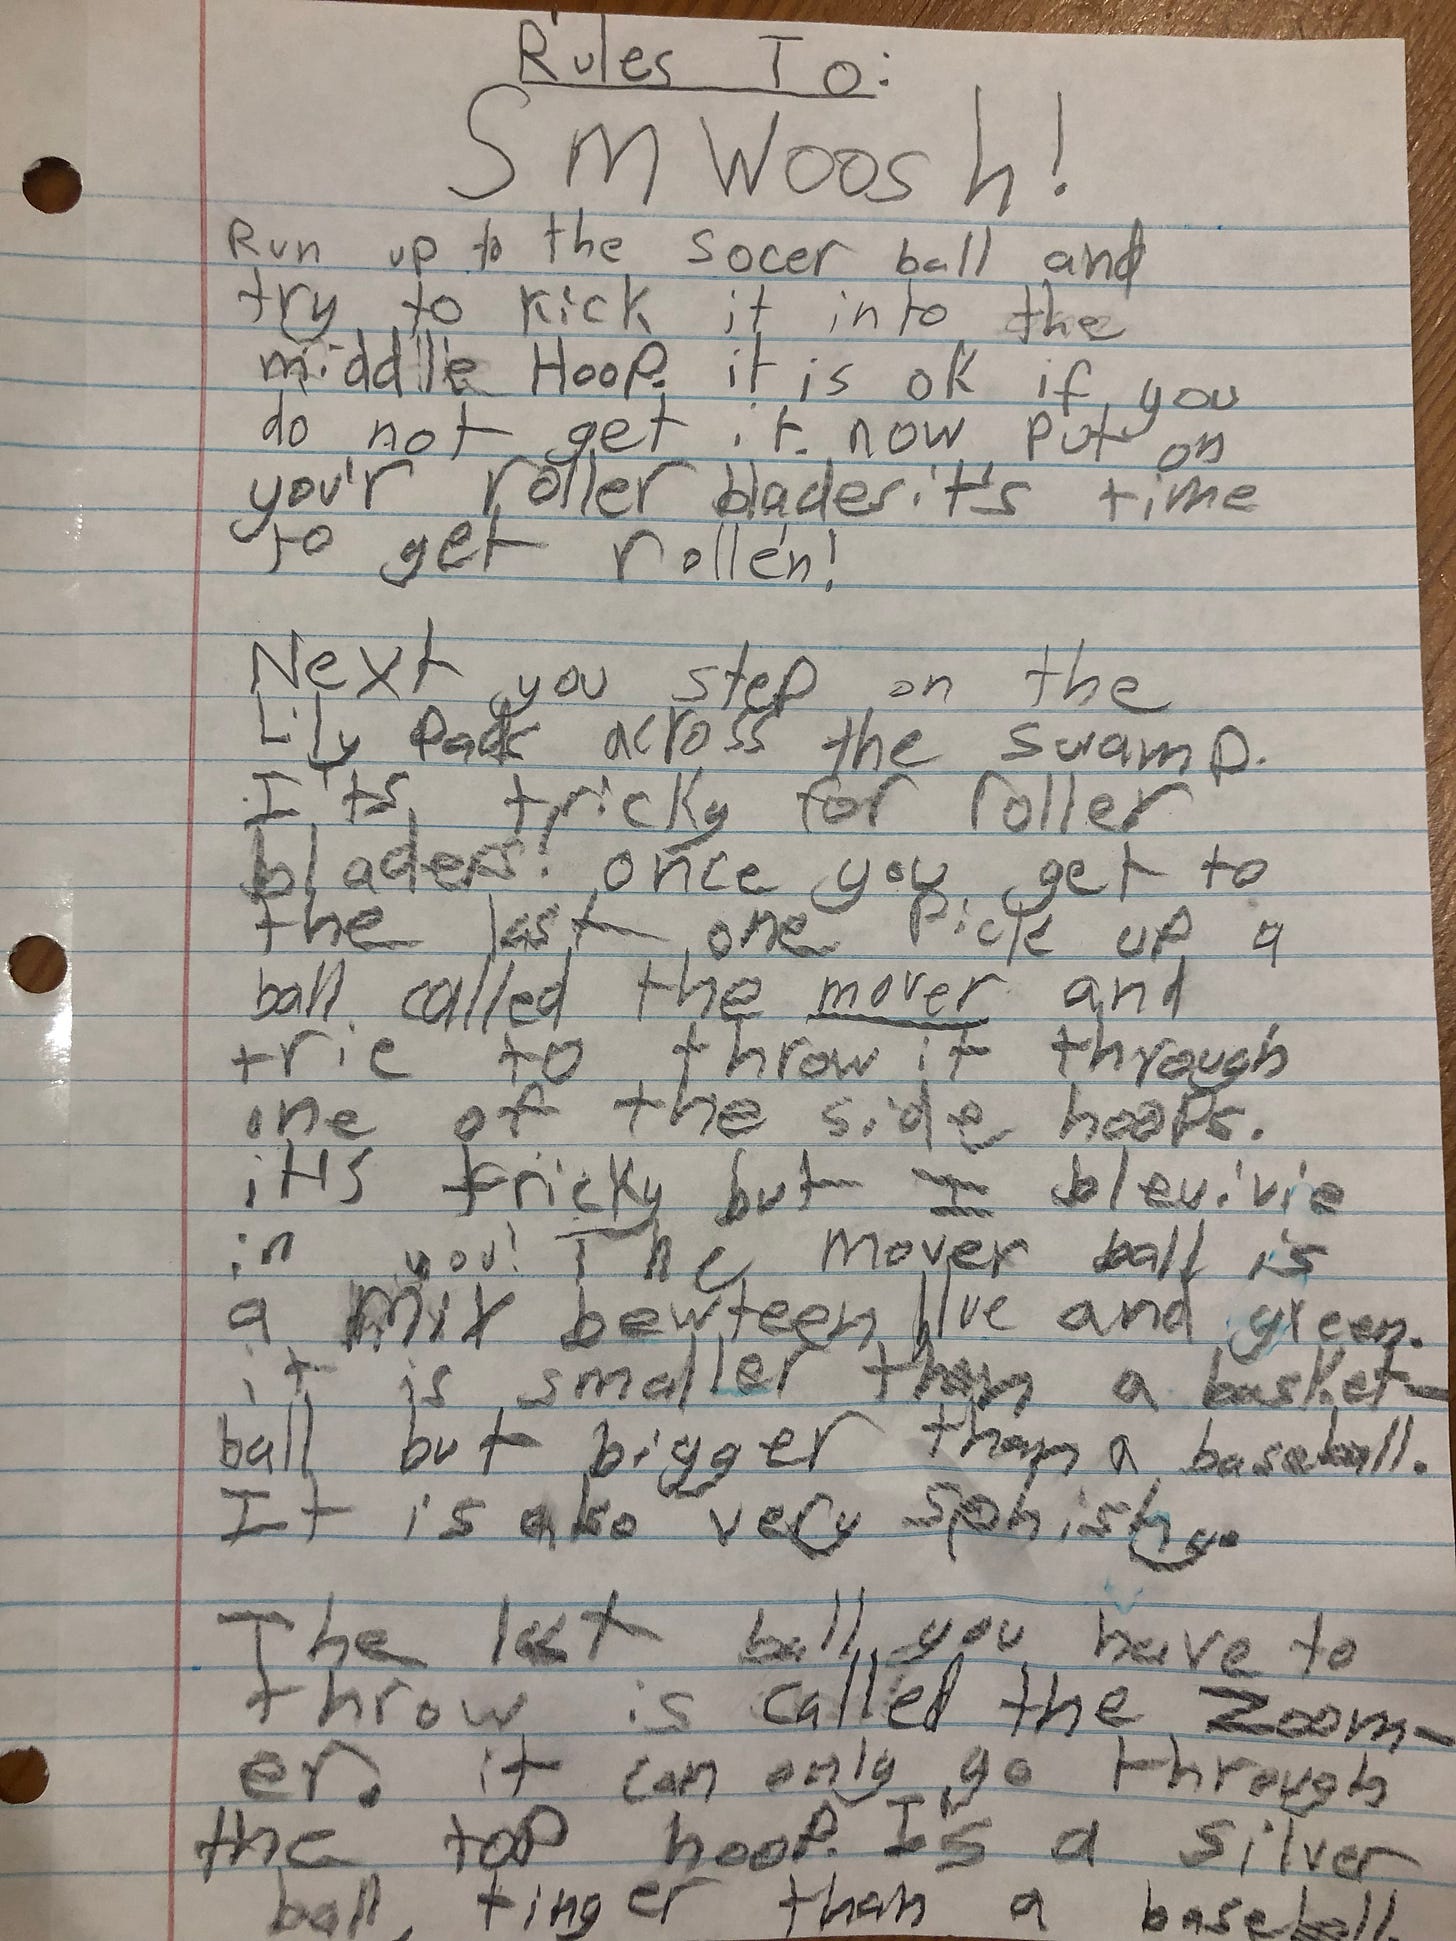 Rules To:
SmWoosh!
Run up to the socer ball and
try to kick it into the
middle Hoop. it is ok if you
do not get it. now put on
you'r roller blades. it's time
to get rollen!
Next you step on the
Lily Pads across the swamp.
It's tricky for roller
bladers! once you get to
the last one Pick up a
ball called the mover and
trie to throw it through
one of the side hoops.
it's tricky but I bleuivie
in you! The mover ball is
a mix bewteen blue and green.
it is smaller than a basket-
ball but bigger than a baseball.
It is also very sphishy.
The last ball you have to
throw is called the Zoom-
er. it can only go through
the top hoop. It's a silver
ball, tinger than a baseball.